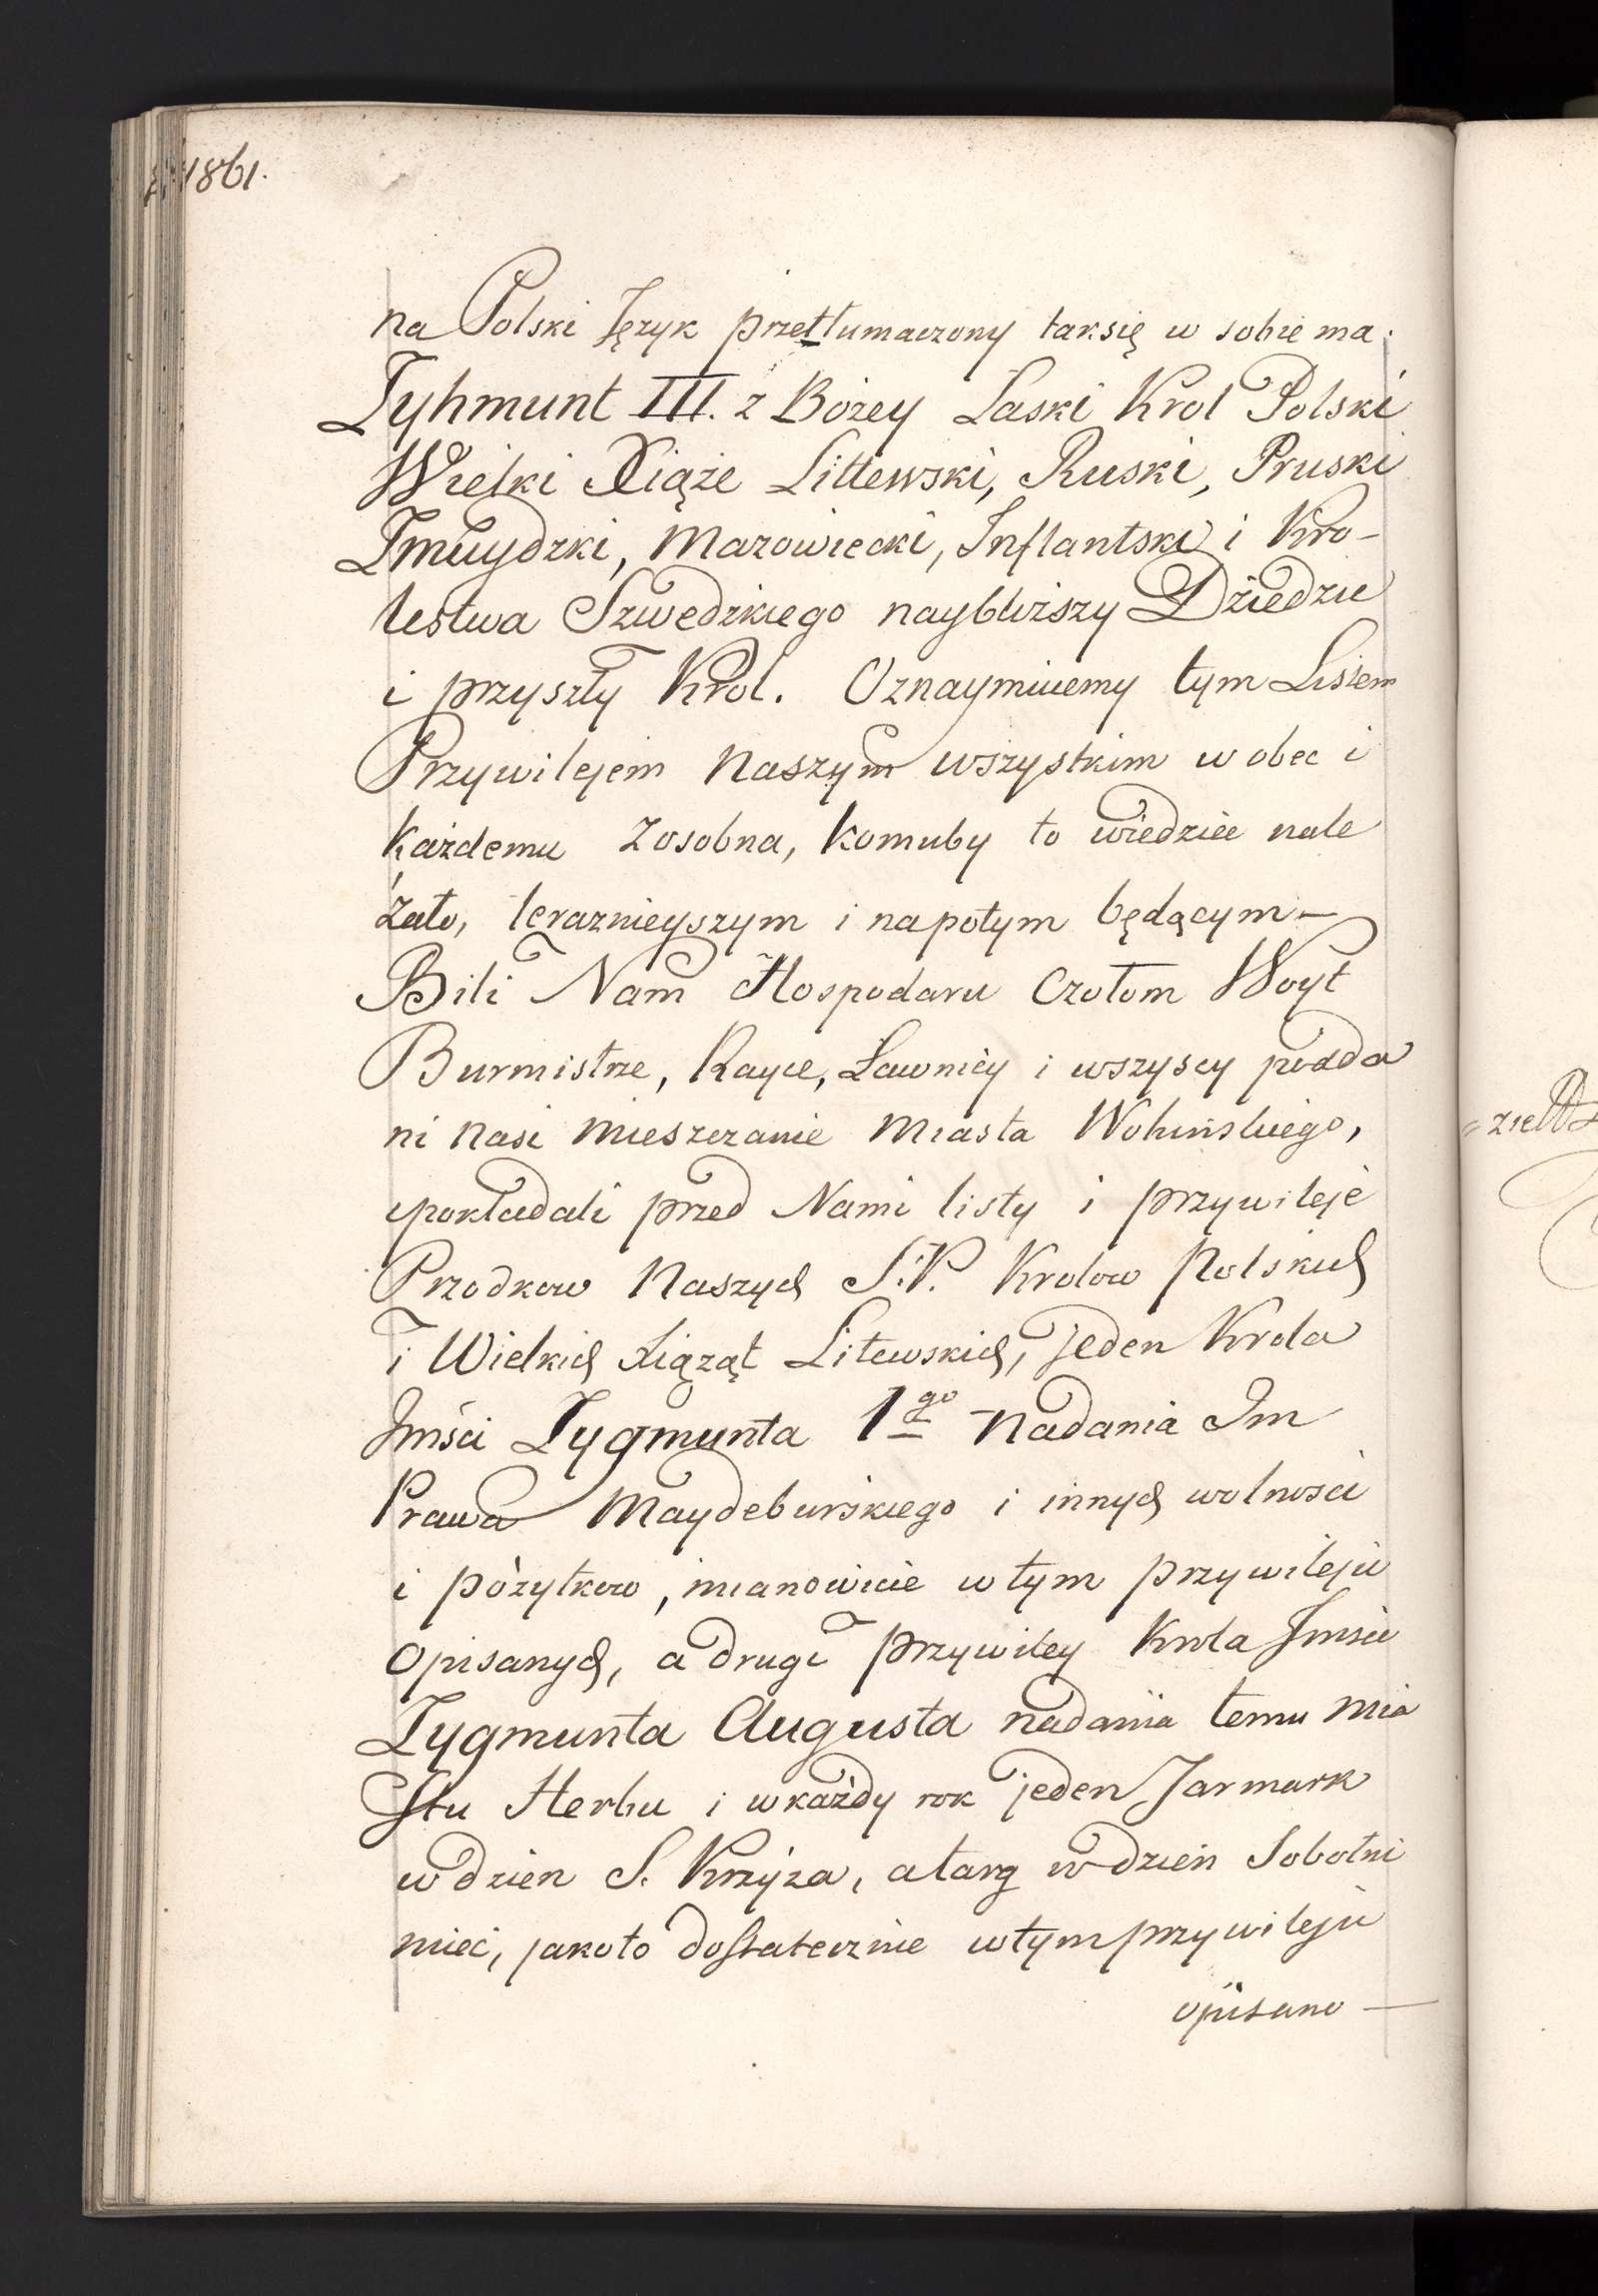 1861.
na Polski Język przetłumaczony tak się w sobie ma.
Zyhmunt III. z Bożey Łaski Krol Polski
Wielki Xiąże Littewski, Ruski, Pruski
Żmuydzki, Mazowiecki, Inflantski i Kro-
lestwa Szwedzkiego naybliższy Dziedzic
i przyszły Krol. Oznaymuiemy tym Listem
Przywilejem Naszym wszystkim w obec i
każdemu zosobna, komuby to wiedzieć nale
żało, teraznieyszym i napotym będącym –
Bili Nam Hospodaru Czołom Woyt
Burmistrze, Rayce, Ławnicy i wszyscy podda
ni nasi mieszczanie miasta Wohińskiego,
pokładali przed Nami listy i przywileje
Przodkow Naszych S.P. Krolow Polskich
i Wielkich Xiąząt Litewskich, jeden Krola
Jmści Zygmunta 1go Nadania Im
Prawa Maydeburskiego i innych wolności
i pożytkow, mianowicie w tym przywileju
opisanych, a drugi przywiley Krola Jmści
Zygmunta Augusta nadania temu mia
stu Herbu i w każdy rok jeden Jarmark
w dzien S. Krzyża, a targ w dzień Sobotni
mieć, jako to dostatecznie w tym przywileju
opisano —